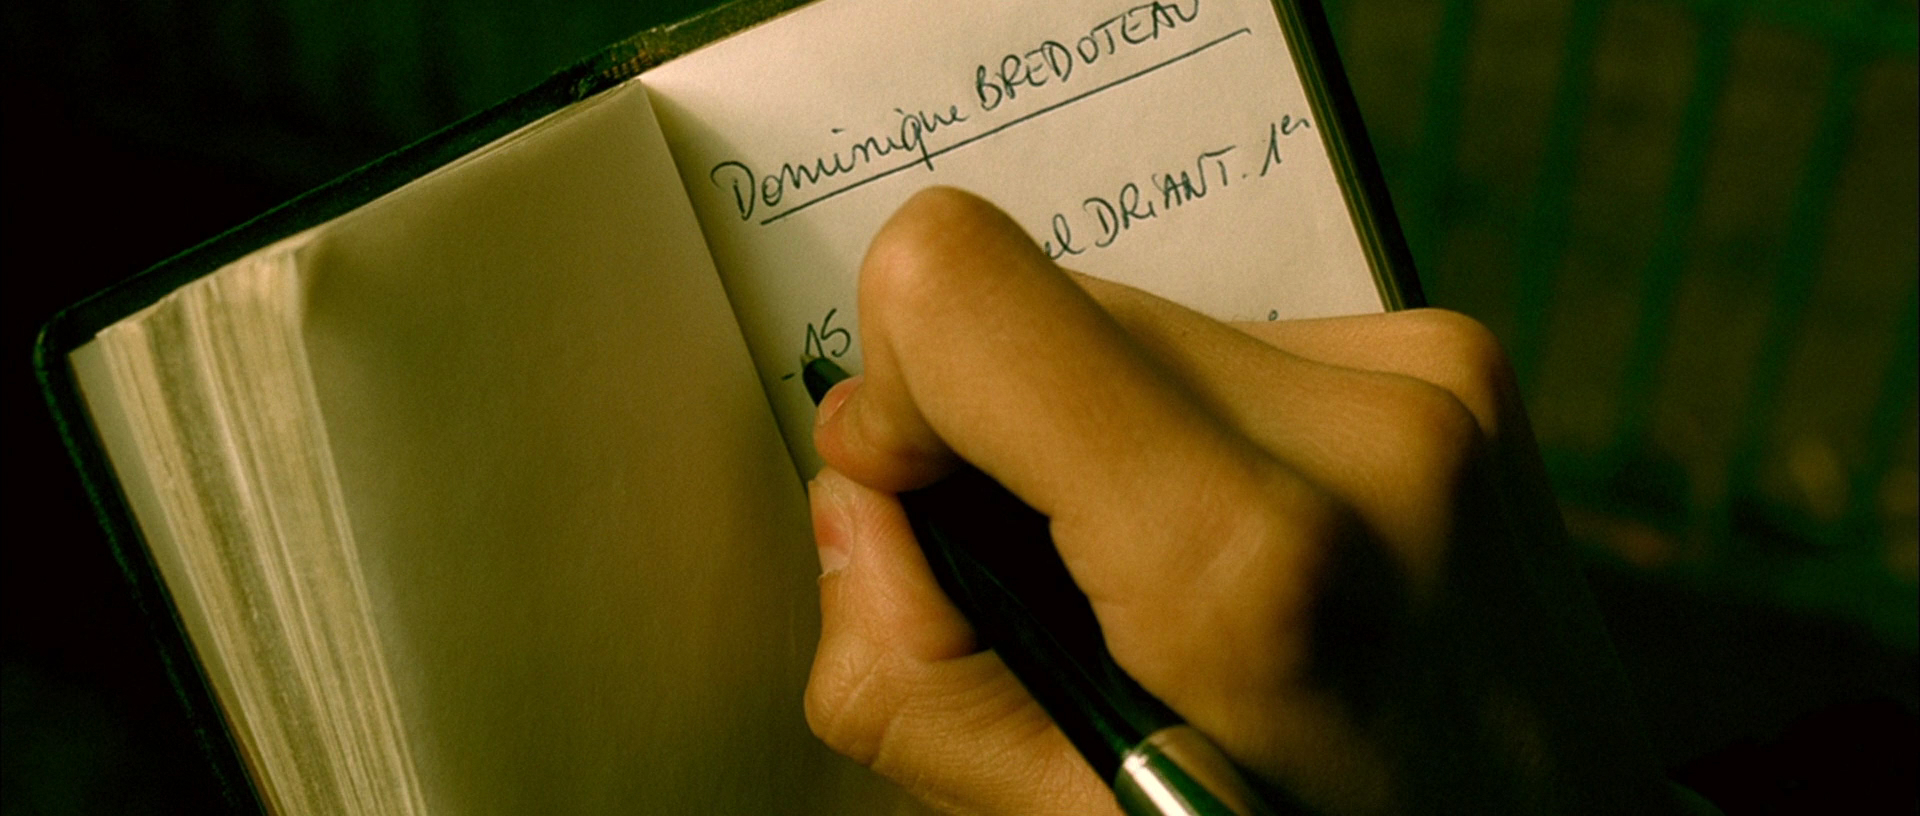 Dominique BREDOTEAU
el DRiANT. 1er
- 15